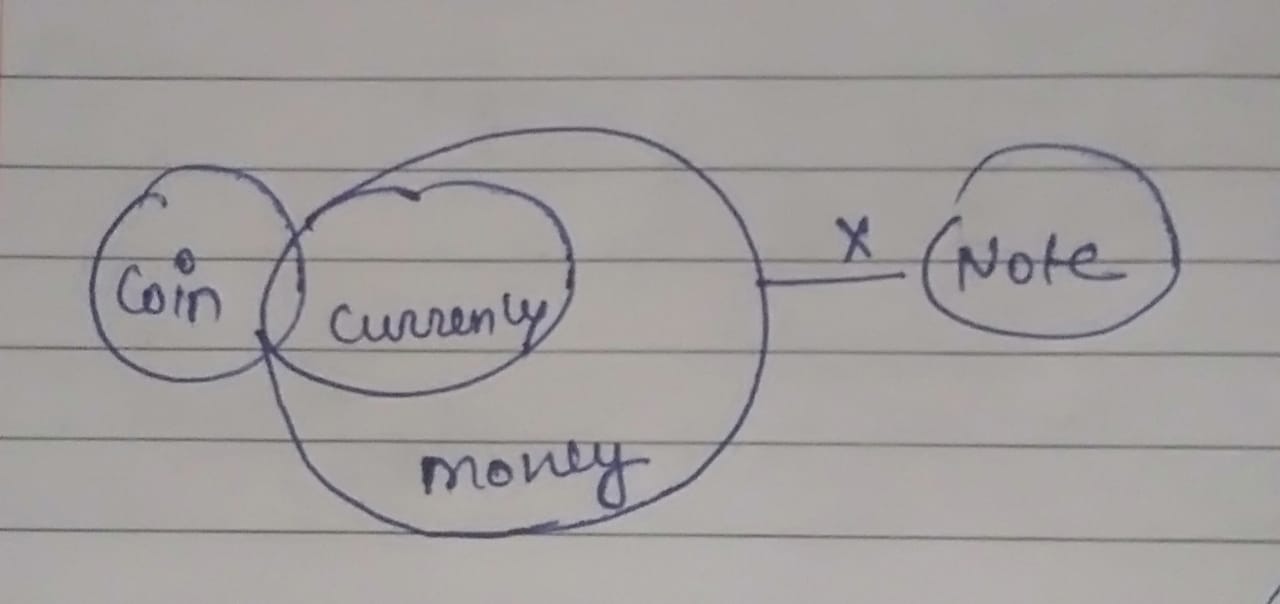 Coin
currency
money
x
Note